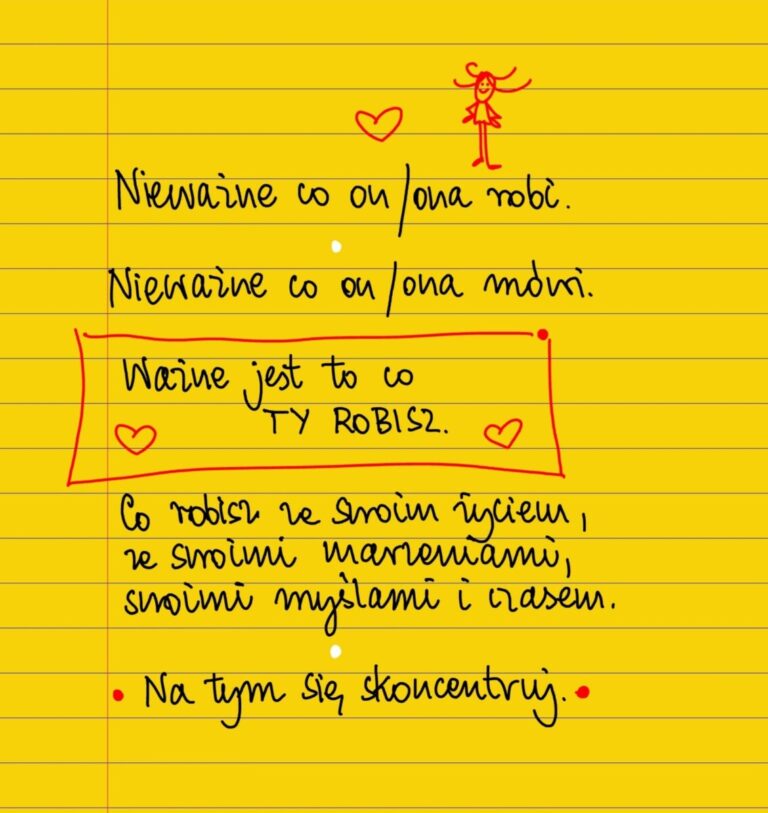 Nieważne co on/ona robi.
Nieważne co on/ona mówi.
Ważne jest to co
TY ROBISZ.
Co robisz ze swoim życiem,
ze swoimi marzeniami,
swoimi myślami i czasem.
Na tym się skoncentruj.